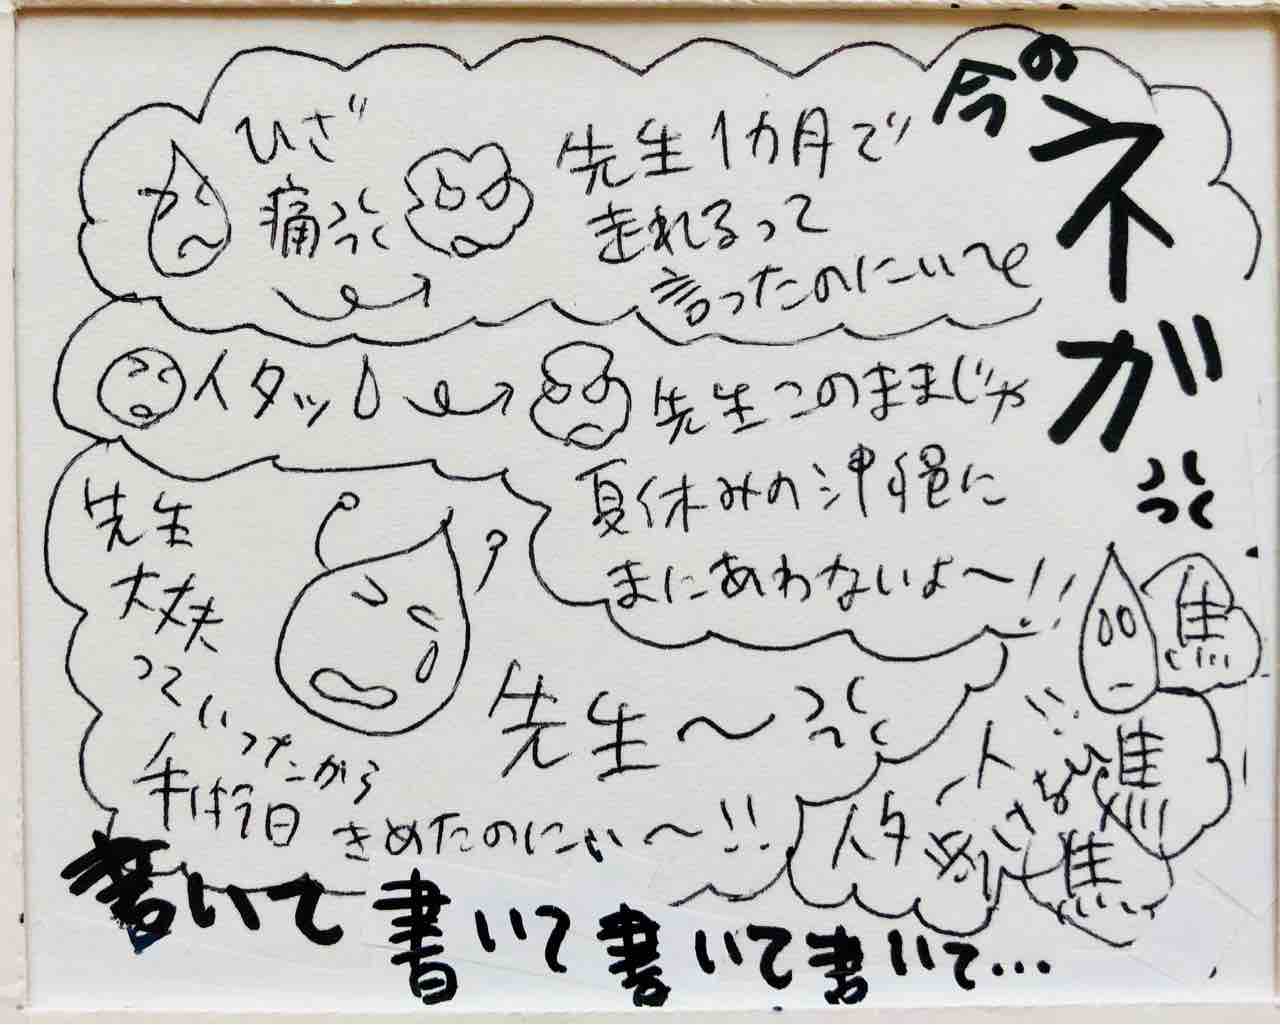 今の
ネガ
ひざ
痛っ
先生1カ月で
走れるって
言ったのにいて
イタッ
先生このままじゃ
夏休みの沖縄に
まにあわないよ〜!!
先生
大丈夫
って
いったから
手術今日
きめたのにぃ〜!!
先生〜
焦
焦
焦
イタ
書いて書いて書いて書いて…